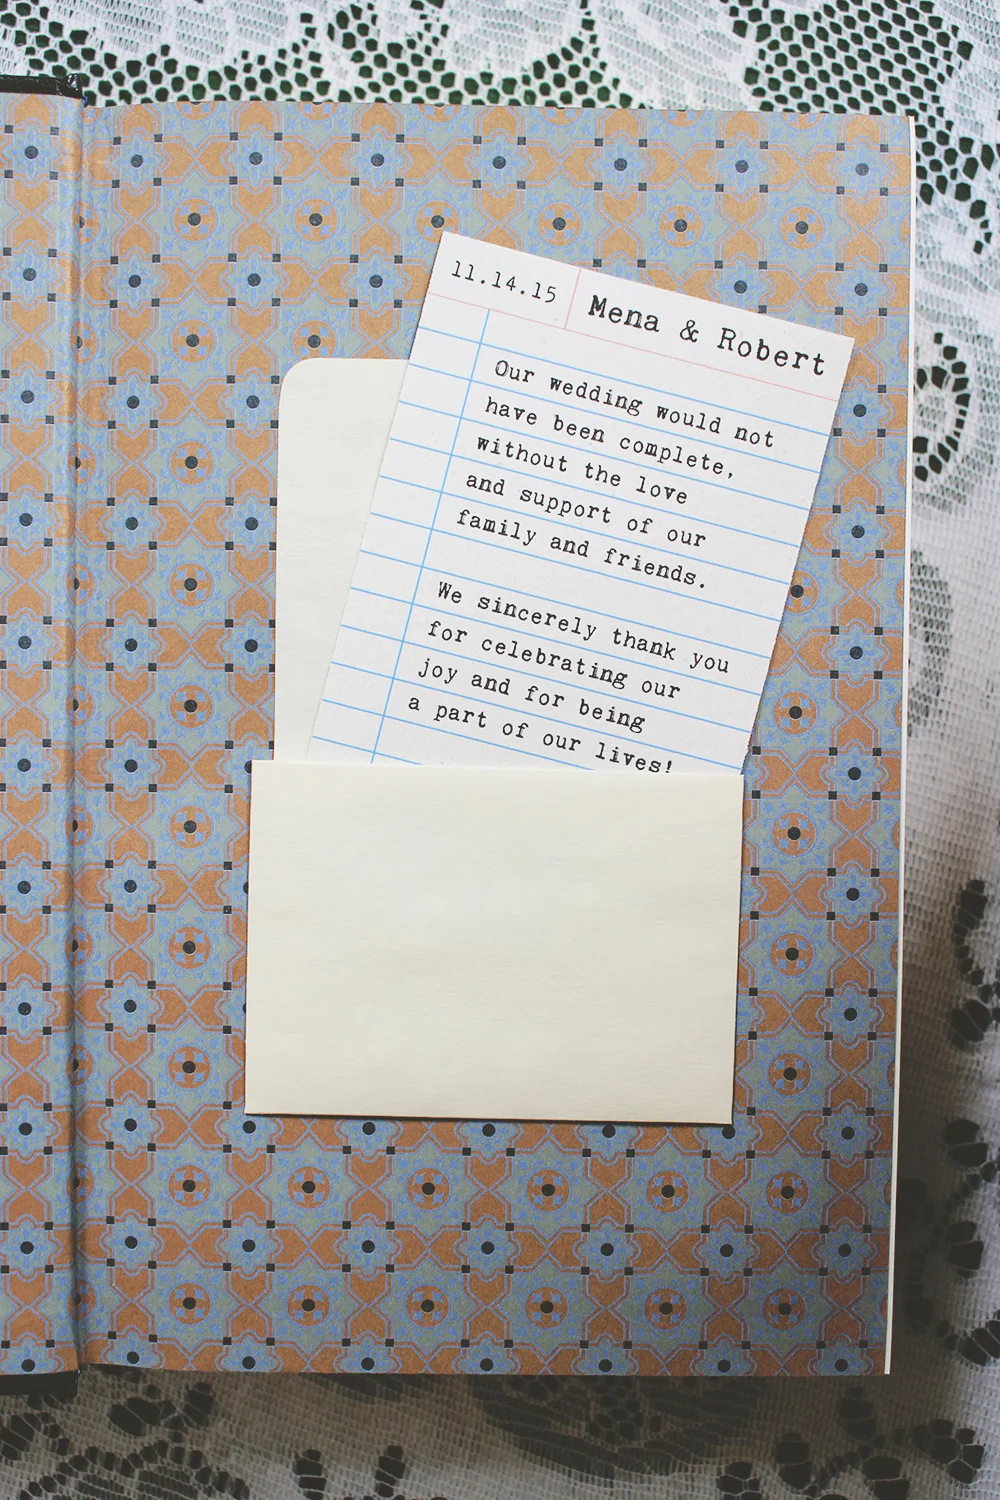 11.14.15
Mena & Robert
Our wedding would not
have been complete,
without the love
and support of our
family and friends.
We sincerely thank you
for celebrating our
joy and for being
a part of our lives!